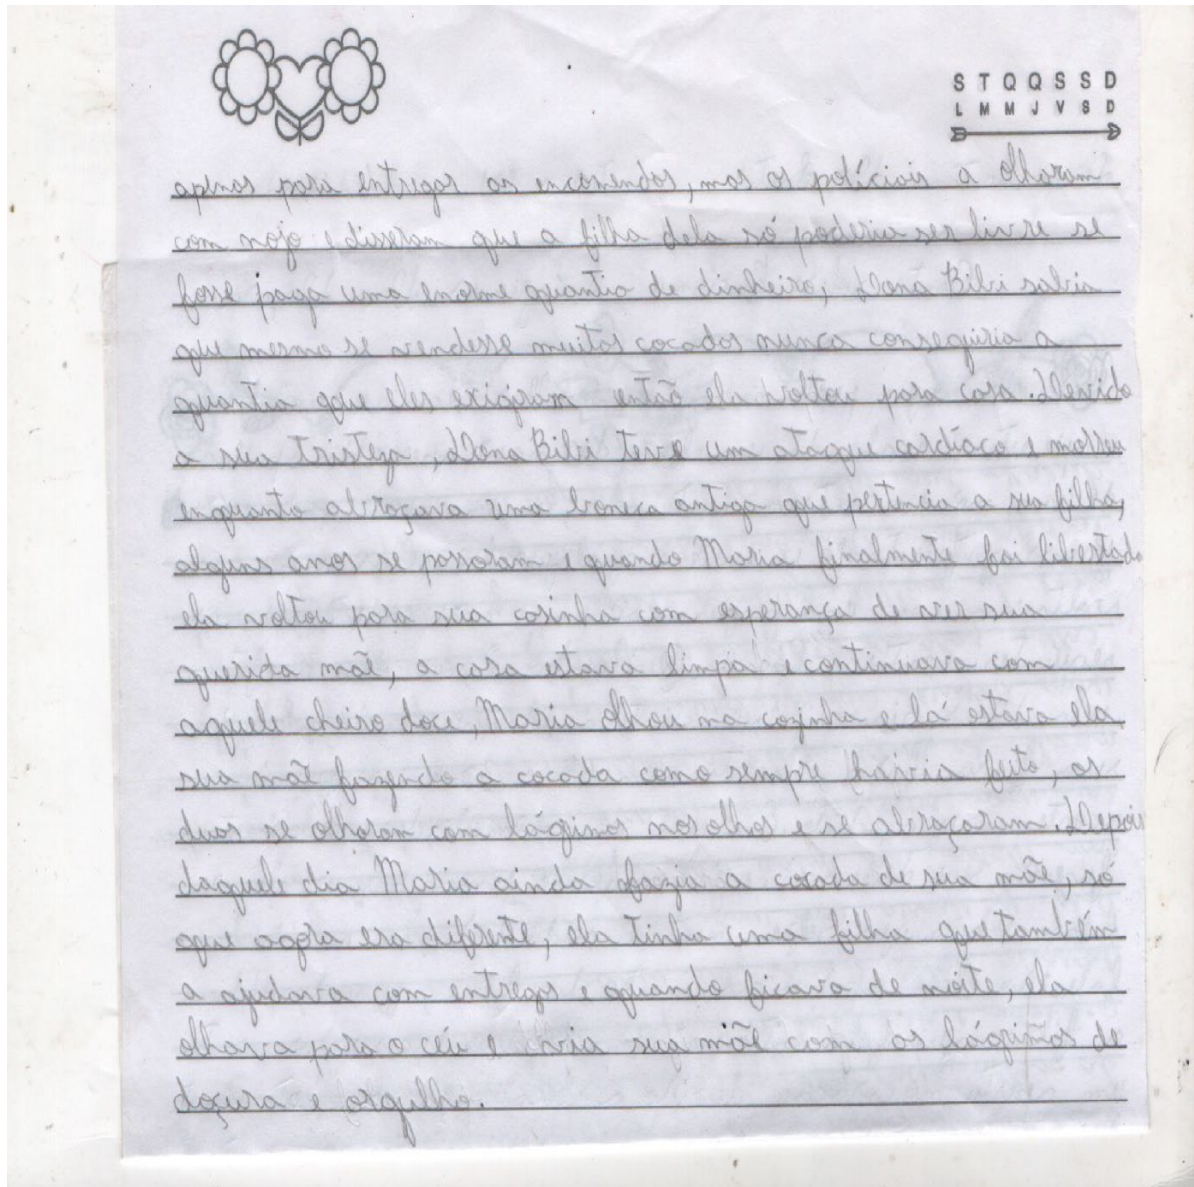 S T Q Q S S D
L M M J V S D
apenas para entregar as encomendas, mas os políciais a olharam
com nojo e disseram que a filha dela só poderia ser livre se
fosse paga uma enorme quantia de dinheiro, Dona Bibi sabia
que mesmo se vendesse muitas cocadas nunca conseguiria a
quantia que eles exigiram então ela voltou para casa. Devido
a sua tristeza, Dona Bibi teve um ataque cardíaco e morreu
enquanto abraçava uma boneca antiga que pertencia a sua filha,
alguns anos se passaram e quando Maria finalmente foi libertada
ela voltou para sua casinha com esperança de ver sua
querida mãe, a casa estava limpa e continuava com
aquele cheiro doce, Maria olhou na cozinha e lá estava ela
sua mãe fazendo a cocada como sempre havia feito, as
duas se olharam com lágrimas nos olhos e se abraçaram. Depois
daquele dia Maria ainda fazia a cocada de sua mãe, só
que agora era diferente, ela tinha uma filha que também
a ajudava com entregas e quando ficava de noite, ela
olhava para o céu e via sua mãe com as lágrimas de
doçura e orgulho.